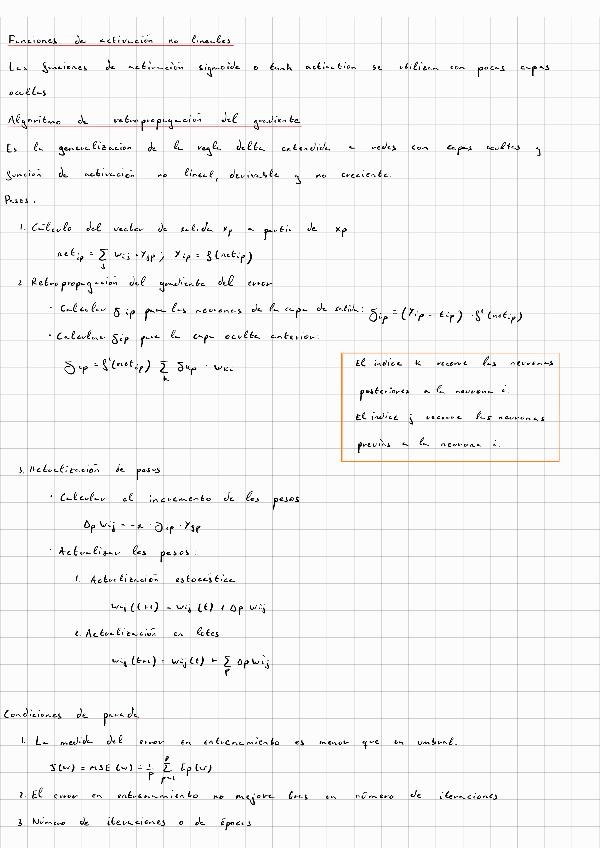 Funciones de activación no lineales
Las funciones de activación sigmoide o tanh activation se utilizan con pocas capas
ocultas
Algoritmo de retropropagación del gradiente
Es la generalización de la regla delta extendida a redes con capas ocultas y
función de activación no lineal, derivable y no creciente.
Pasos.
1. Cálculo del vector de salida xp a partir de xp
net_ip = Σ_j w_ij · Y_jp ; Y_ip = f(net_ip)
2. Retropropagación del gradiente del error
· Calcular δ_ip para las neuronas de la capa de salida: δ_ip = (Y_ip - t_ip) · f'(net_ip)
· Calcular δ_ip para la capa oculta anterior.
δ_ip = f'(net_ip) Σ_k δ_kp · w_ki
El índice k recorre las neuronas
posteriores a la neurona i.
El índice j recorre las neuronas
previas a la neurona i.
3. Actualización de pesos
· Calcular el incremento de los pesos
Δp w_ij = -α · δ_ip · Y_jp
· Actualizar los pesos.
1. Actualización estocástica
w_ij (t+1) = w_ij (t) + Δp w_ij
2. Actualización en lotes
w_ij (t+1) = w_ij (t) + Σ_p Δp w_ij
Condiciones de parada
1. La medida del error en entrenamiento es menor que un umbral.
J(w) = MSE (w) = 1/P Σ_{p=1}^{P} Ep(w)
2. El error en entrenamiento no mejora tras un número de iteraciones
3. Número de iteraciones o de épocas